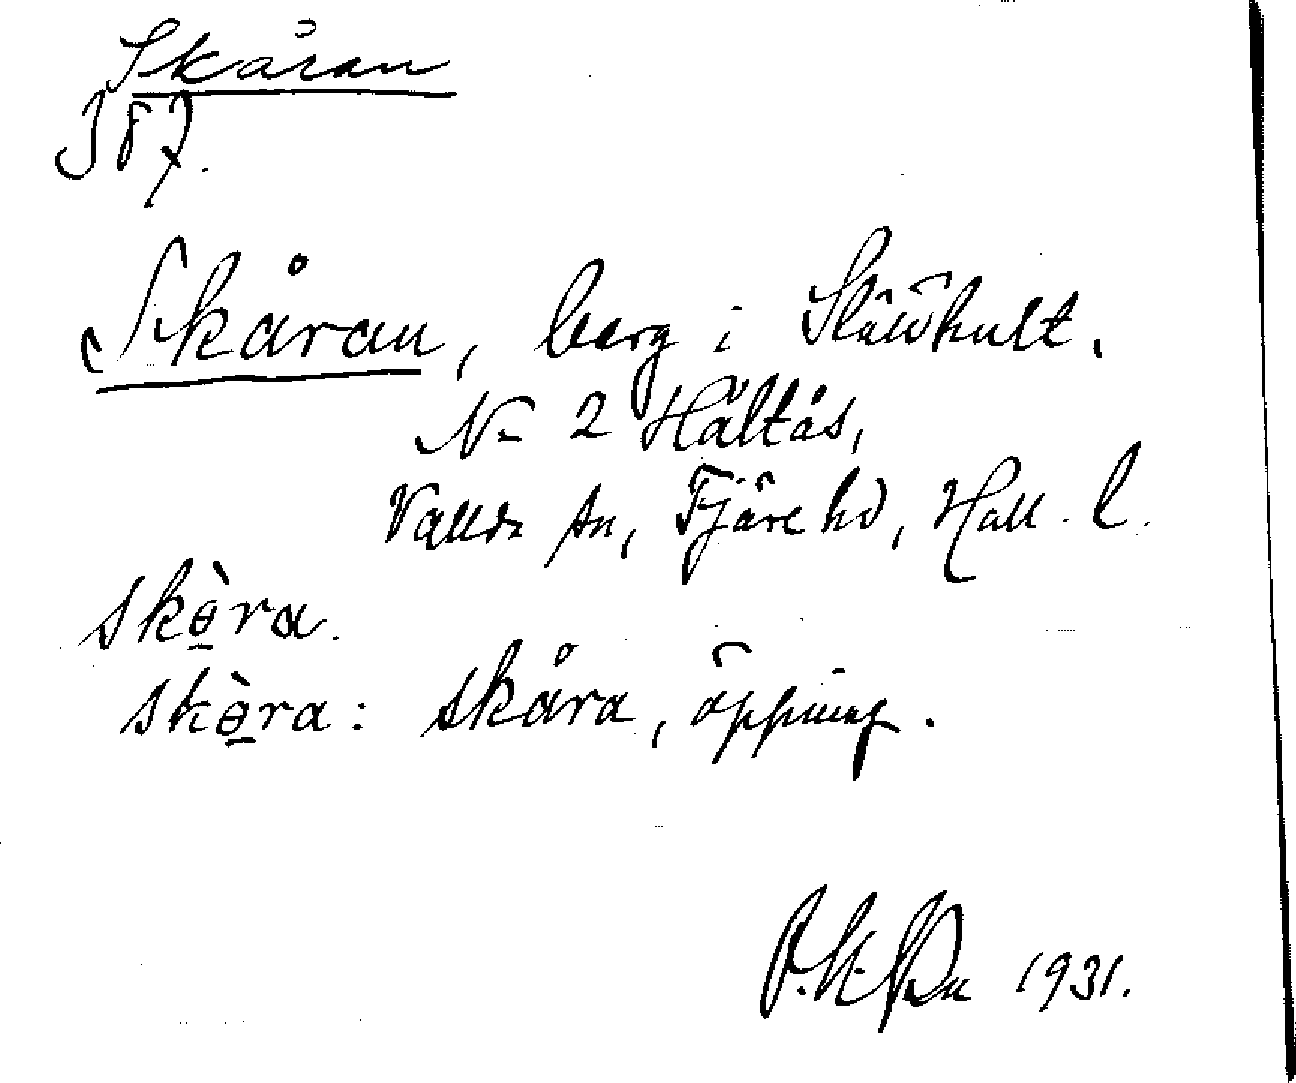 Skåran
I 87.
Skåran, berg i
No 2 Hältås,
Vallda sn, Fjäre hd, Hall. l.
skòra.
skòra: skåra, öppning.
1931.